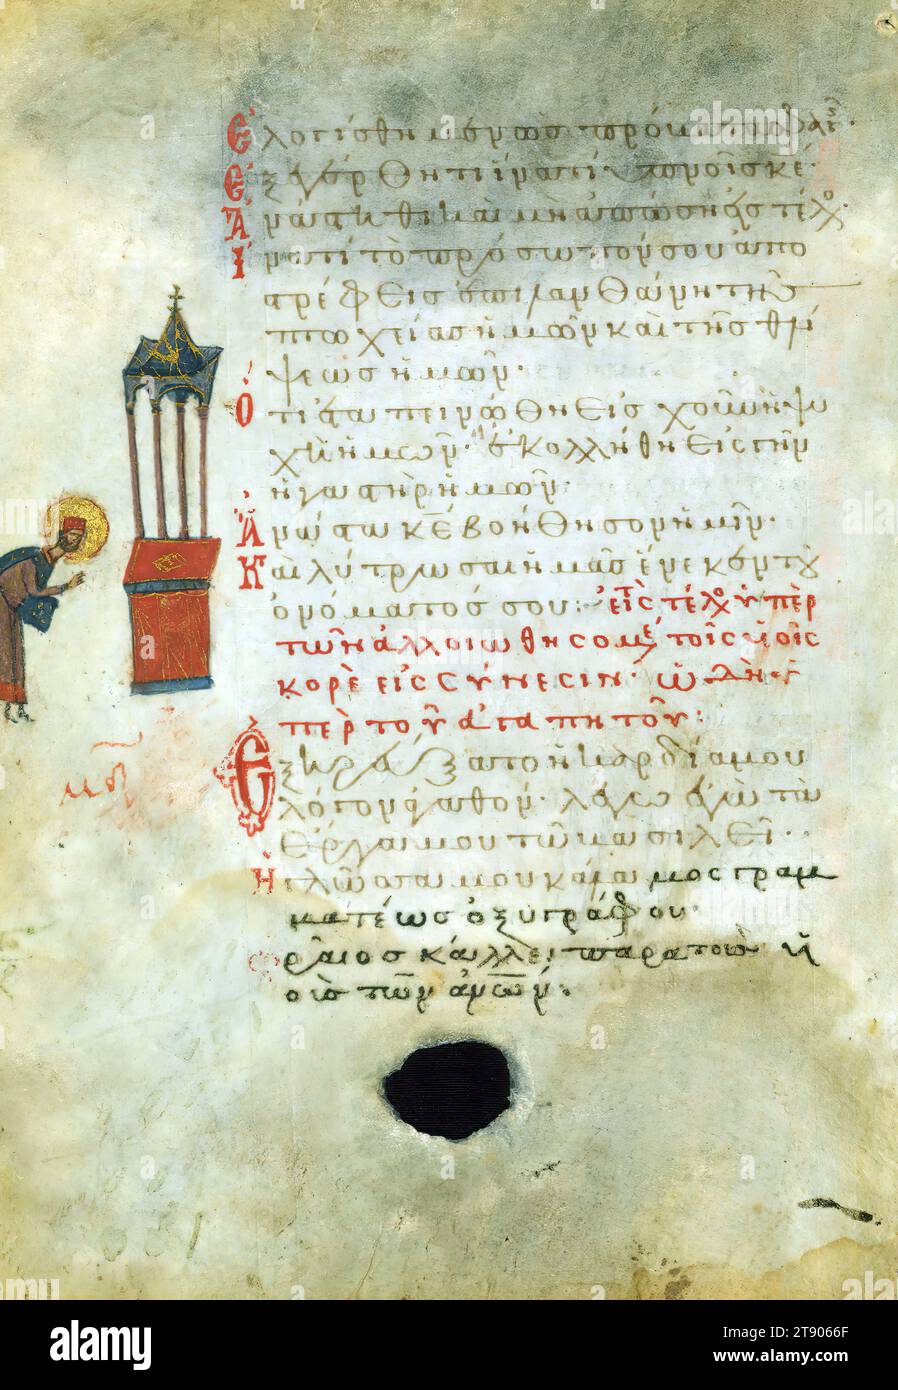 Ἐλογίσθημεν ὡς πρόβατα σφαγῆς·
Ἐξεγέρθητι ἵνα τί ὑπνοῖς κε·
Ἀνάστηθι καὶ μὴ ἀπώσῃ εἰς τέλο·
Ἵνα τί τὸ πρόσωπόν σου ἀπο
στρέφεις ἐπιλανθάνῃ τῆς
πτωχείας ἡμῶν καὶ τῆς θλί
ψεως ἡμῶν·
Ὅτι ἐταπεινώθη εἰς χοῦν ἡ ψυ
χὴ ἡμῶν· ἐκολλήθη εἰς γῆν
ἡ γαστὴρ ἡμῶν·
Ἀνάστα κε βοήθησον ἡμῖν·
Καὶ λύτρωσαι ἡμᾶς ἕνεκεν τοῦ
ὀνόματός σου: εἰς τέλο ὑπὲρ
τῶν ἀλλοιωθησομέ τοῖς υἱοῖς
κορὲ εἰς σύνεσιν· ὠδὴ ὑ
πὲρ τοῦ ἀγαπητοῦ:
Ἐξηρεύξατο ἡ καρδία μου
λόγον ἀγαθόν· λέγω ἐγὼ τὰ
ἔργα μου τῷ βασιλεῖ·
Ἡ γλῶσσα μου κάλαμος γραμ
ματέως ὀξυγράφου·
ὡραῖος κάλλει παρὰ τοὺς υἱ
οὺς τῶν ἀνων·
alamy
Image ID: 2T9066F
www.alamy.com